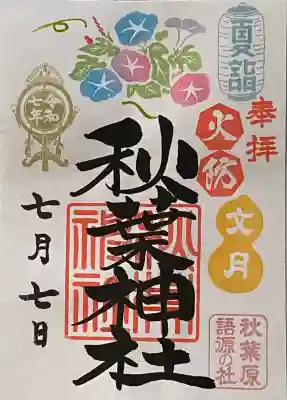 夏詣
奉拝
火防
文月
秋葉神社
秋葉神社
令和
七年
七月七日
秋葉原
語源の社